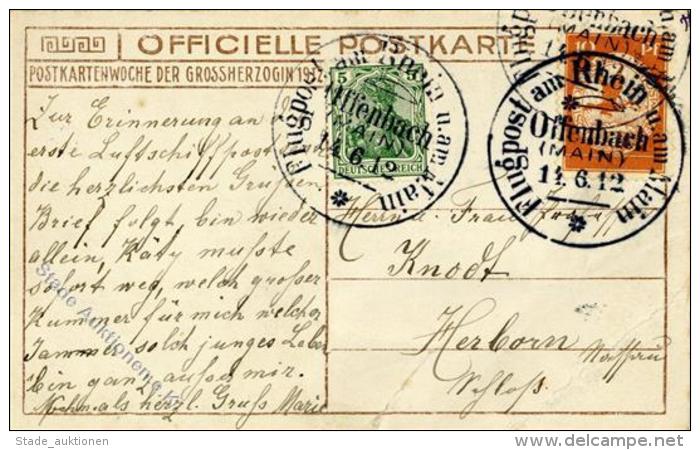 OFFICIELLE POSTKARTE
POSTKARTENWOCHE DER GROSSHERZOGIN 1912
Zur Erinnerung an die
erste Luftschiffpost sendet
die herzlichsten Grüße.
Brief folgt, bin wieder
allein, Käty mußte
sofort weg, welch großer
Kummer für mich welcher
Jammer so solch junges Leben
bin ganz außer mir.
Nochmals herzl. Gruß Marie
5
DEUTSCHES REICH
Flugpost am Rhein u. am Main
Offenbach
(MAIN)
14.6.12
Flugpost am Rhein u. am Main
Offenbach
(MAIN)
14.6.12
Offenbach
(MAIN)
Herrn u. Frau
Knodt
Herborn
Nassau
Schloß
Stade Auktionen
Stade_auktionen
delcampe.net